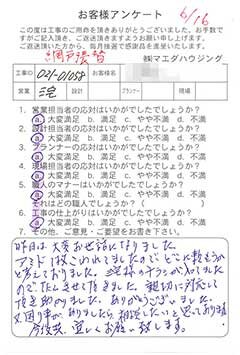 お客様アンケート
6/16
この度は工事のご用命を頂きありがとうございました。お手数で
すがご記入頂き、ご返送頂きますようお願い申し上げます。
ご返送頂いた方から、毎月抽選で感謝品を進呈いたします。
網戸張替
㈱マエダハウジング
工事ID
お客様名
営業
三宅
設計
プランナー
現場
1. 営業担当者の応対はいかがでしたでしょうか?
a 大変満足 b. 満足 c. やや不満 d. 不満
2. 設計担当者の応対はいかがでしたでしょうか?
a 大変満足 b. 満足 c. やや不満 d. 不満
3. プランナーの応対はいかがでしたでしょうか?
a 大変満足 b. 満足 c. やや不満 d. 不満
4. 現場担当者の応対はいかがでしたでしょうか?
a 大変満足 b. 満足 c. やや不満 d. 不満
5. 職人のマナーはいかがでしたでしょうか?
a 大変満足 b. 満足 c. やや不満 d. 不満
それはどの職人でしょうか?( )
6. 工事の仕上がりはいかがでしたでしょうか?
a 大変満足 b. 満足 c. やや不満 d. 不満
7. その他、ご意見・ご要望をお書き下さい。
昨日は大変お世話になりました。
アミド
考えておりました。
のでTELさせて頂きました。親切に対応して
頂き助かりました。ありがとうございました。
又困り事が、ありましたら相談したいと思っております
今後共、宜しくお願い致します。